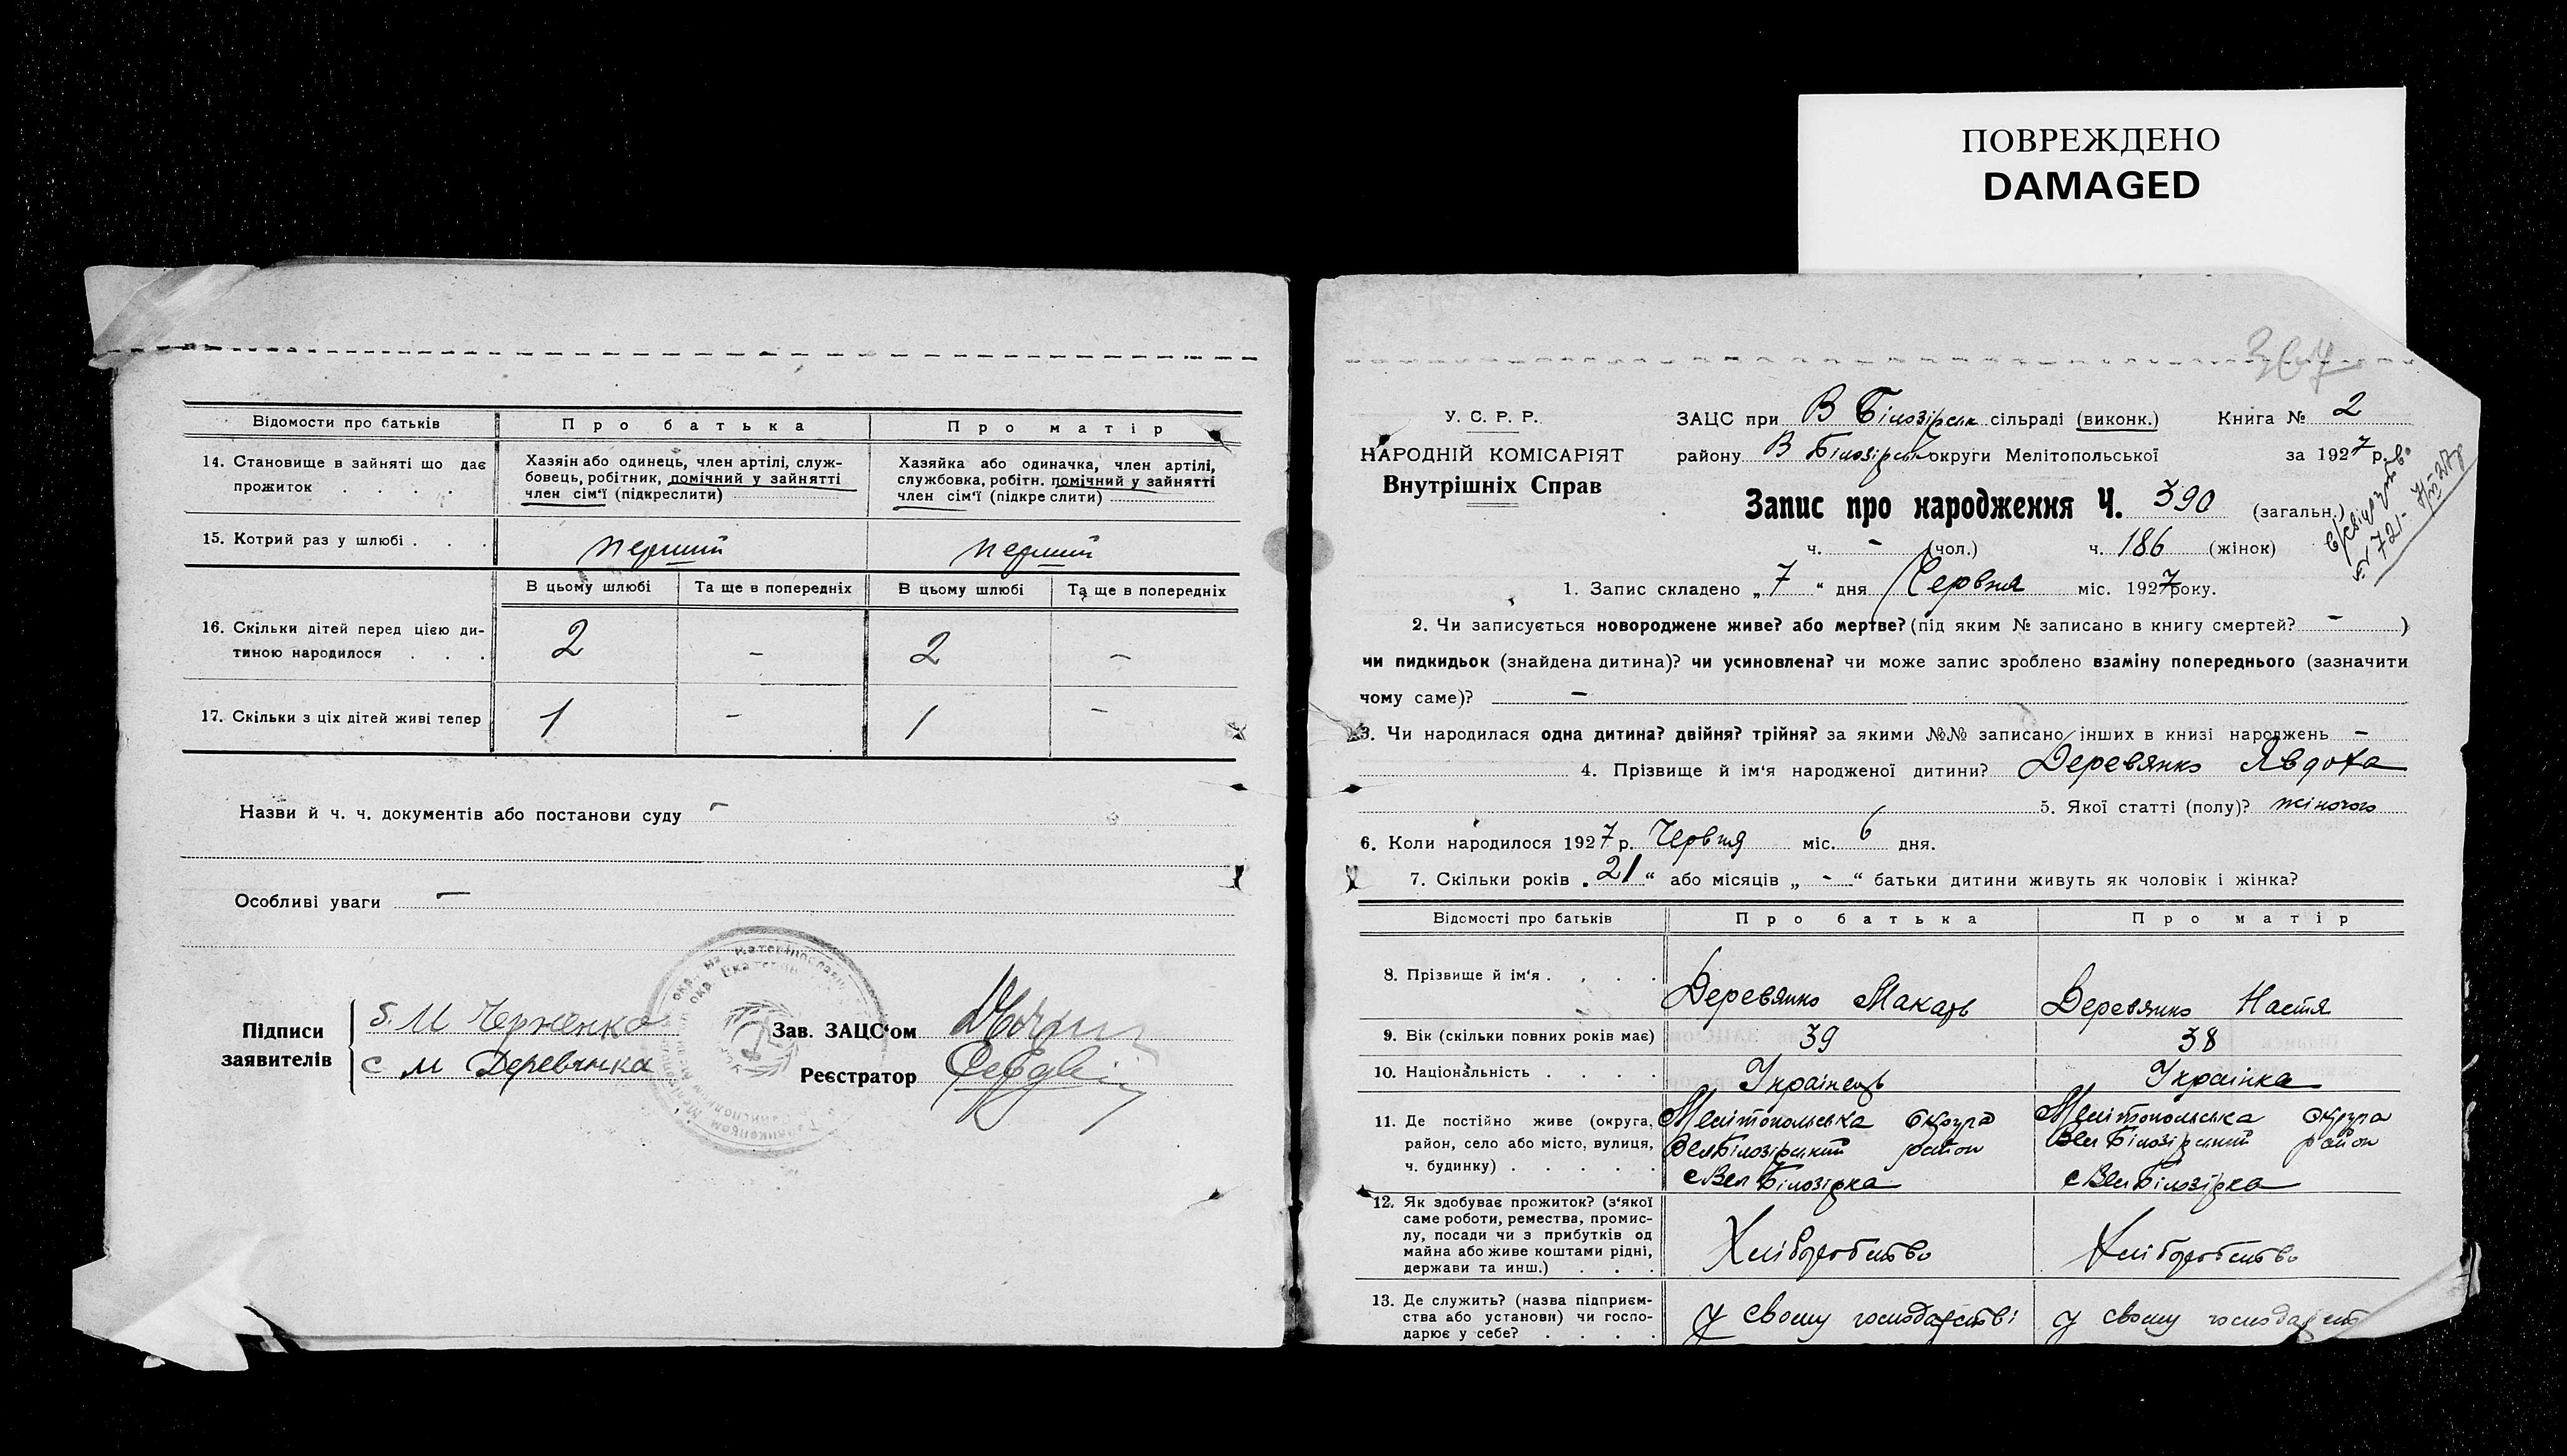 ПОВРЕЖДЕНО
DAMAGED
Відомости про батьків
Про батька
Про матір
14. Становище в зайняті що дає прожиток . . . .
Хазяїн або одинець, член артілі, служ-
бовець, робітник, помічний у зайнятті
член сім'ї (підкреслити)
Хазяйка або одиначка, член артілі,
службовка, робітн. помічний у зайнятті
член сім'ї (підкреслити)
15. Котрий раз у шлюбі . . .
перший
перший
В цьому шлюбі
Та ще в попередніх
В цьому шлюбі
Та ще в попередніх
16. Скільки дітей перед цією ди-
тиною народилося . . .
2 - 2 -
17. Скільки з ціх дітей живі тепер
1 - 1 -
Назви й ч. ч. документів або постанови суду -
Особливі уваги -
Підписи
заявителів
б. М Черненко
с М Деревянка
Зав. ЗАЦС'ом
Реєстратор
У. С. Р. Р.
НАРОДНІЙ КОМІСАРІЯТ
Внутрішніх Справ
ЗАЦС при В Білозірськ сільраді (виконк.) Книга № 2
району В Білозірськ округи Мелітопольської за 1927 р.
Запис про народження Ч. 390 (загальн.)
ч. - (чол.) ч. 186 (жінок)
1. Запис складено „7“ дня Червня міс. 1927 року.
2. Чи записується новороджене живе? або мертве? (під яким № записано в книгу смертей? - )
чи пидкидьок (знайдена дитина)? чи усиновлена? чи може запис зроблено взаміну попереднього (зазначити
чому саме)? -
3. Чи народилася одна дитина? двійня? трійня? за якими №№ записано інших в книзі народжень -
4. Прізвище й ім'я народженої дитини? Деревянко Явдоха
5. Якої статті (полу)? жіночого
6. Коли народилося 1927 р. Червня міс. 6 дня.
7. Скільки років „21“ або місяців „-“ батьки дитини живуть як чоловік і жінка?
Відомості про батьків
Про батька
Про матір
8. Прізвище й ім'я . . . .
Деревянко Макарь
Деревянко Настя
9. Вік (скільки повних років має)
39
38
10. Національність . . . .
Українець
Українка
11. Де постійно живе (округа,
район, село або місто, вулиця,
ч. будинку) . . . . .
Мелітопольська округа
Вел Білозірський район
с Вел Білозірка
Мелітопольська округа
Вел Білозірський район
с Вел Білозірка
12. Як здобуває прожиток? (з'якої
саме роботи, ремества, промис-
лу, посади чи з прибутків од
майна або живе коштами рідні,
держави та инш.) . . .
Хліборобство
Хліборобство
13. Де служить? (назва підприєм-
ства або установи) чи госпо-
дарює у себе? . . . .
у своему господарстві
у своему господарст